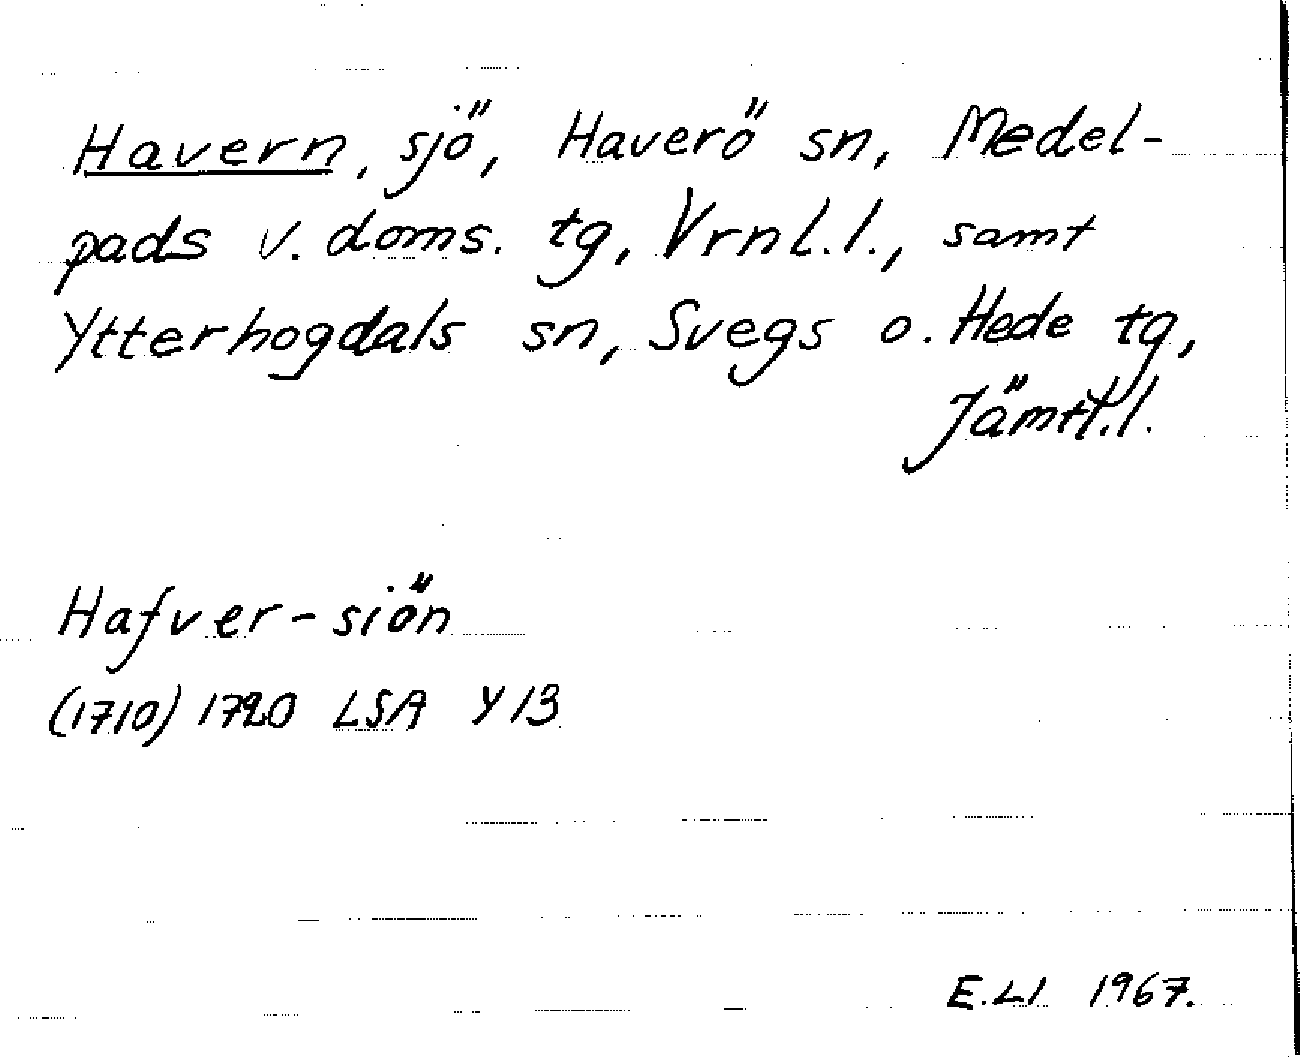 Havern, sjö, Haverö sn, Medel-
pads v. doms. tg, Vrnl.l., samt
Ytterhogdals sn, Svegs o. Hede tg,
Jämtl.l.
Hafver-siön
(1710) 1720 LSA Y 13
E.LI 1967.